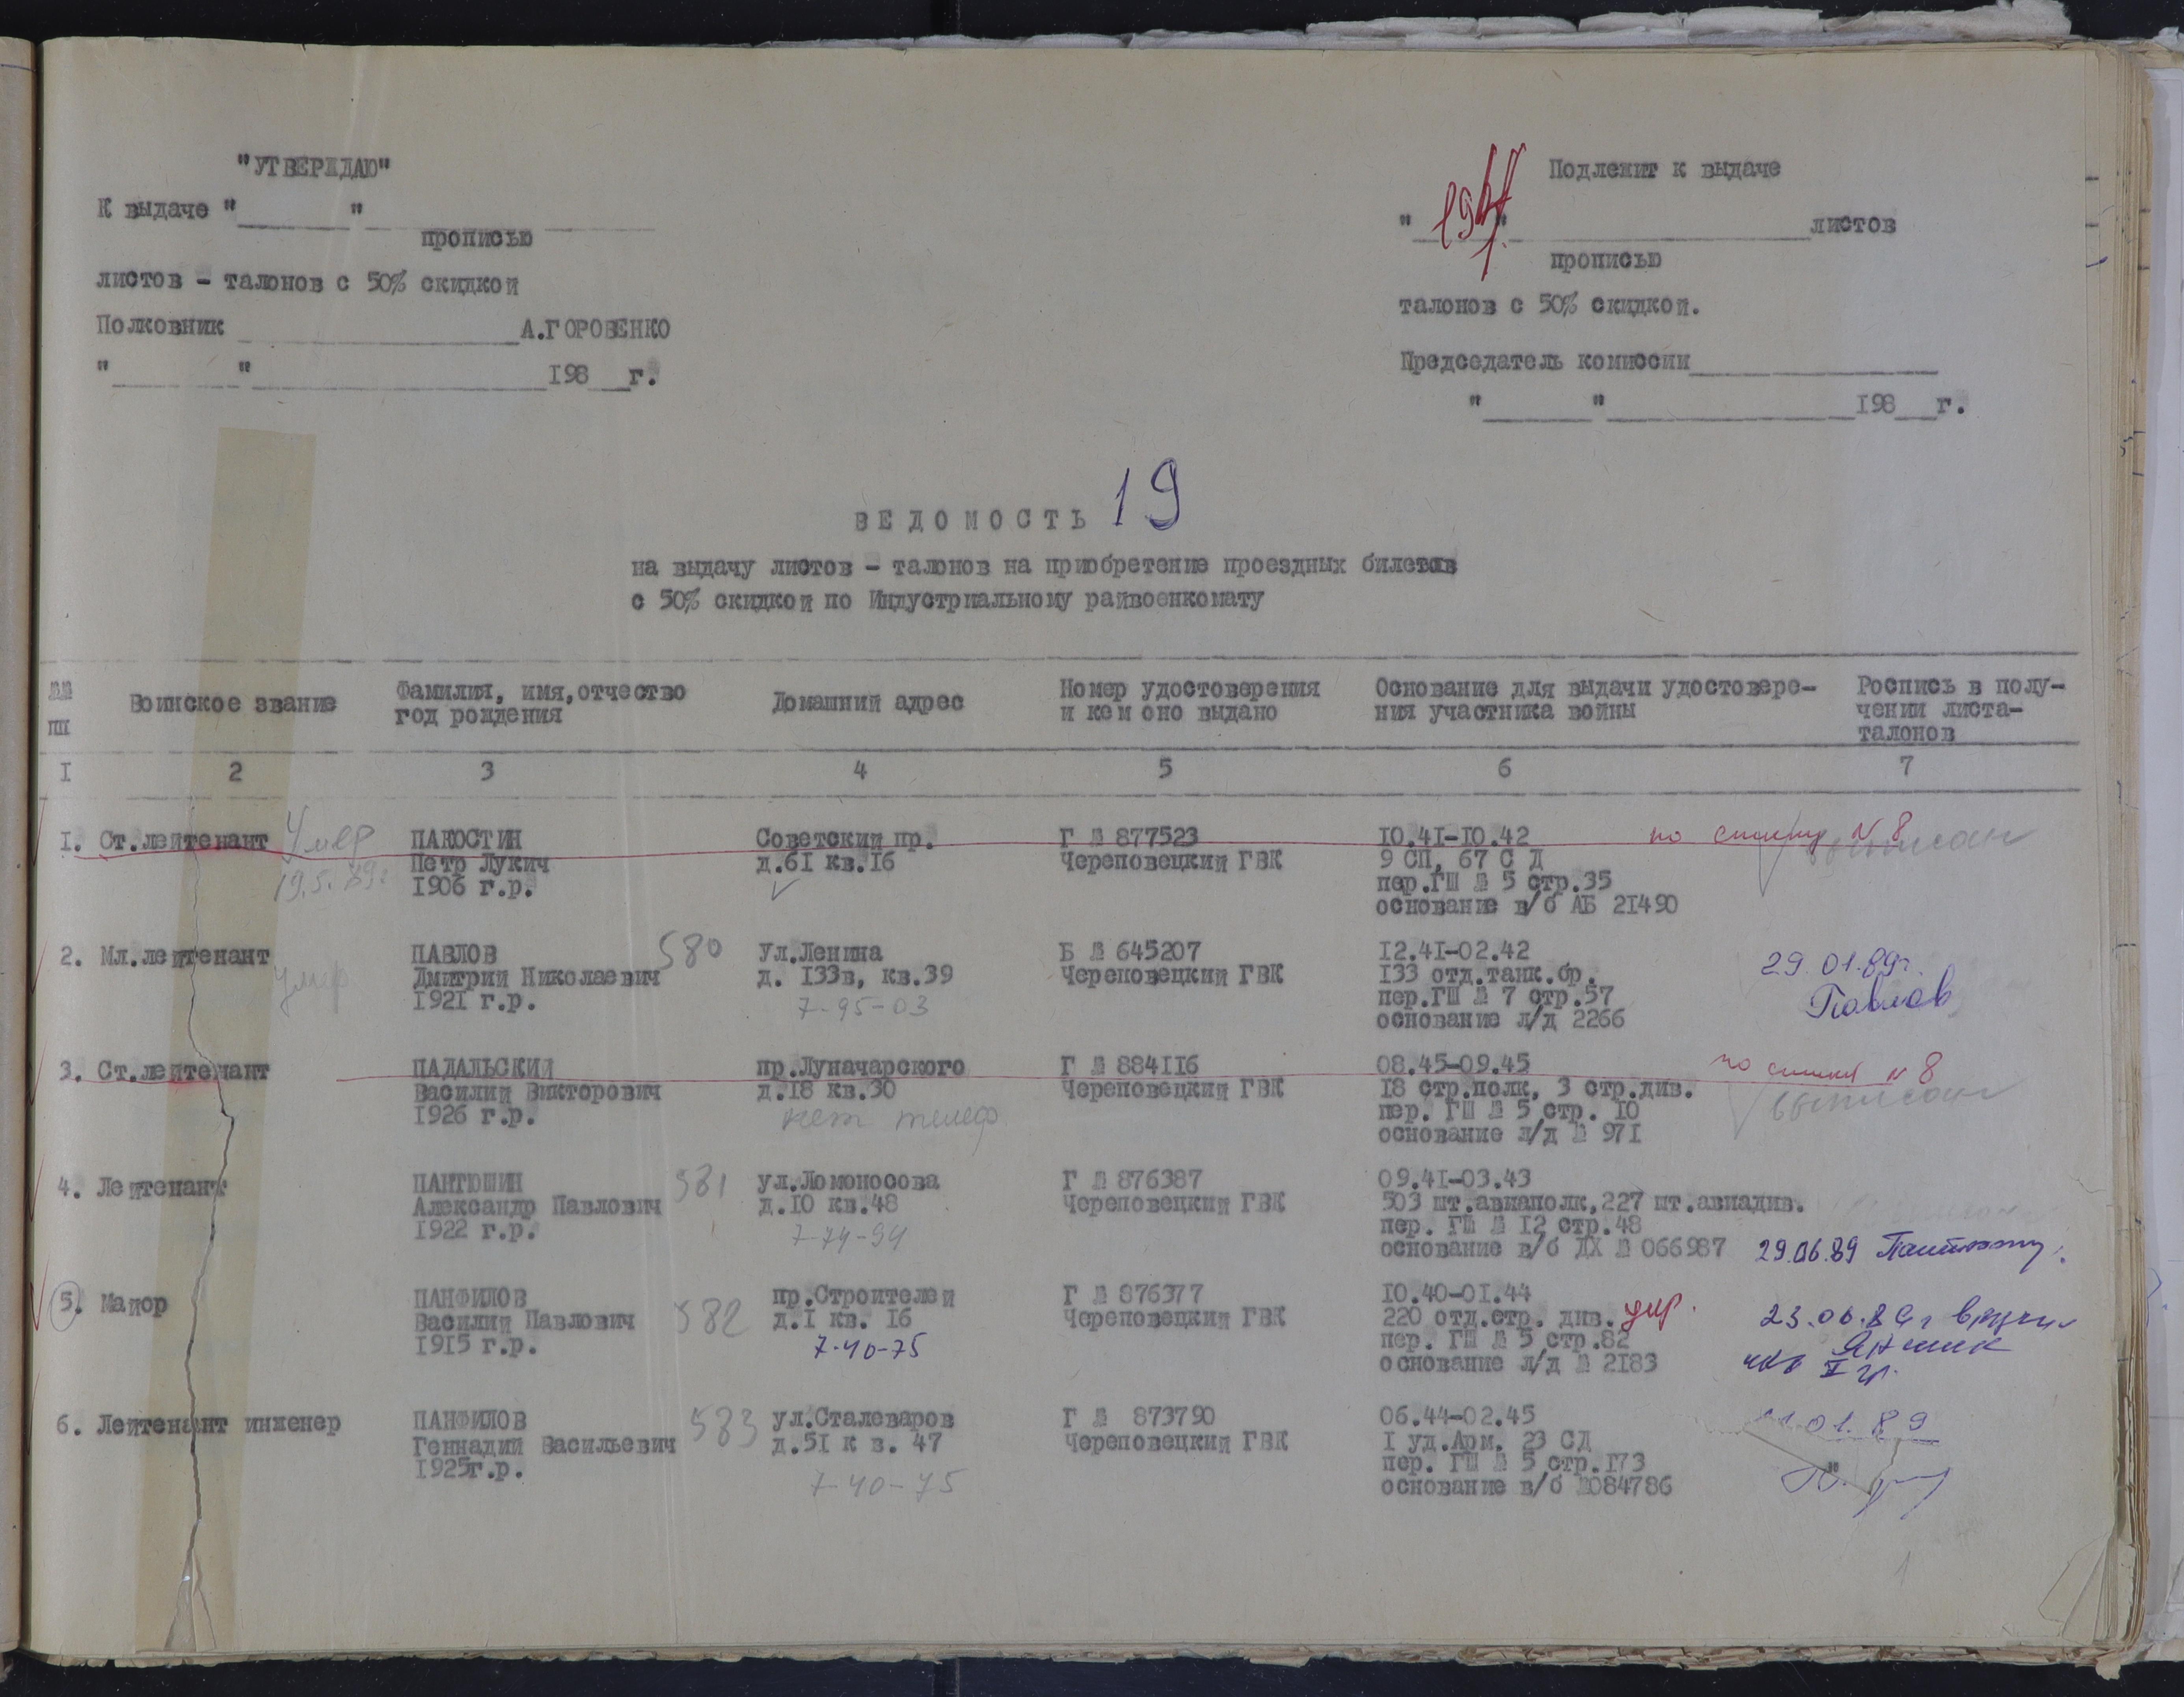 "УТВЕРЖДАЮ"
К выдаче "______" ______
прописью
листов - талонов с 50% скидкой
Полковник ______ А.ГОРОВЕНКО
"______" ______ 198__г.
Подлежит к выдаче
"______" ______ листов
прописью
талонов с 50% скидкой.
Председатель комиссии______
"______" ______ 198__г.
ВЕДОМОСТЬ 19
на выдачу листов - талонов на приобретение проездных билетов
с 50% скидкой по Индустриальному райвоенкомату
№№ пп
Воинское звание
Фамилия, имя, отчество
год рождения
Домашний адрес
Номер удостоверения
и кем оно выдано
Основание для выдачи удостовере-
ния участника войны
Роспись в полу-
чении листа-
талонов
I 2 3 4 5 6 7
I. Ст.лейтенант Умер ПАКОСТИН Советский пр. Г № 877523 10.41-10.42 по списку № 8
19.5.89г Петр Лукич д.61 кв.16 Череповецкий ГВК 9 СП, 67 С Д выписан
1906 г.р. пер.ГШ № 5 стр.35
основание в/б АБ 21490
2. Мл.лейтенант ПАВЛОВ 580 Ул.Ленина Б № 645207 12.41-02.42 29.01.89г.
умер Дмитрий Николаевич д. 133в, кв.39 Череповецкий ГВК 133 отд.танк.бр. Павлов
1921 г.р. 7-95-03 пер.ГШ № 7 стр.57
основание л/д 2266
3. Ст.лейтенант ПАДАЛЬСКИЙ пр.Луначарского Г № 884116 08.45-09.45 по списку № 8
Василий Викторович д.18 кв.30 Череповецкий ГВК 18 стр.полк, 3 стр.див. выписан
1926 г.р. нет телеф. пер. ГШ № 5 стр. 10
основание л/д № 971
4. Лейтенант ПАНТЮШИН 581 ул.Ломоносова Г № 876387 09.41-03.43
Александр Павлович д.10 кв.48 Череповецкий ГВК 503 шт.авиаполк,227 шт.авиадив.
1922 г.р. 7-74-94 пер. ГШ № 12 стр.48
основание в/б ДХ № 066987 29.06.89
5. Майор ПАНФИЛОВ пр.Строителей Г № 876377 10.40-01.44
Василий Павлович 582 д.1 кв. 16 Череповецкий ГВК 220 отд.стр. див. умр. 23.06.89г
1915 г.р. 7-40-75 пер. ГШ № 5 стр.82
основание л/д № 2183 инв II гр.
6. Лейтенант инженер ПАНФИЛОВ 583 ул.Сталеваров Г № 873790 06.44-02.45 01.89
Геннадий Васильевич д.51 к в. 47 Череповецкий ГВК 1 уд.Арм. 23 СД
1925г.р. 7-40-75 пер. ГШ № 5 стр.173
основание в/б №084786